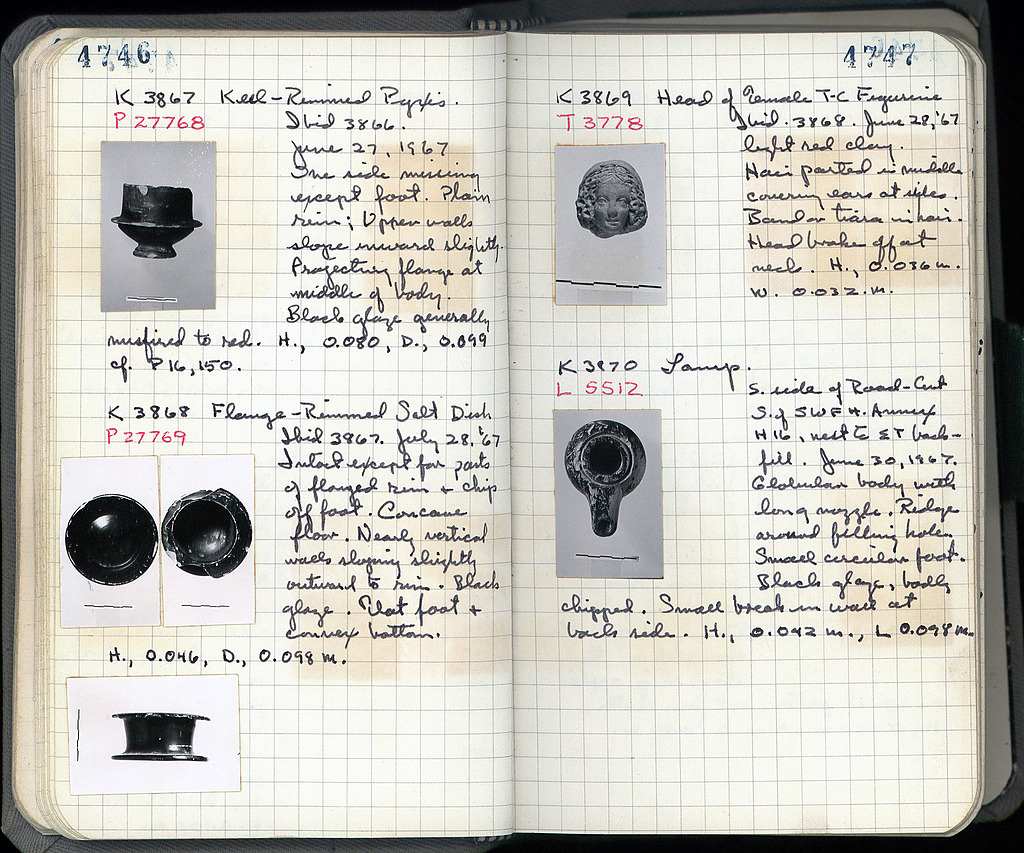 4746
K 3867 Keel-Rimmed Pyxis.
P 27768
Ibid 3866.
June 27, 1967
One side missing
except foot. Plain
rim; Upper walls
slope inward slightly.
Projecting flange at
middle of body.
Black glaze generally
misfired to red. H., 0.080, D., 0.099
cf. P 16,150.
K 3868 Flange-Rimmed Salt Dish
P 27769
Ibid 3867. July 28, '67
Intact except for parts
of flanged rim + chip
off foot. Concave
floor. Nearly vertical
walls sloping slightly
outward to rim. Black
glaze. Flat foot +
convex bottom.
H., 0.046, D., 0.098 m.
4747
K 3869 Head of Female T-C Figurine
T 3778
Ibid. 3868. June 28, '67
light red clay.
Hair parted in middle
covering ears at sides.
Band or tiara in hair.
Head broke off at
neck. H., 0.036 m.
W. 0.032. m.
K 3870 Lamp.
L 5512
S. side of Road-Cut
S. of SWFH. Annex
H 16, next to ET back-
fill. June 30, 1967.
Globular body with
long nozzle. Ridge
around filling hole.
Small circular foot.
Black glaze, badly
chipped. Small break in wall at
back side. H., 0.042 m., L 0.098 m.